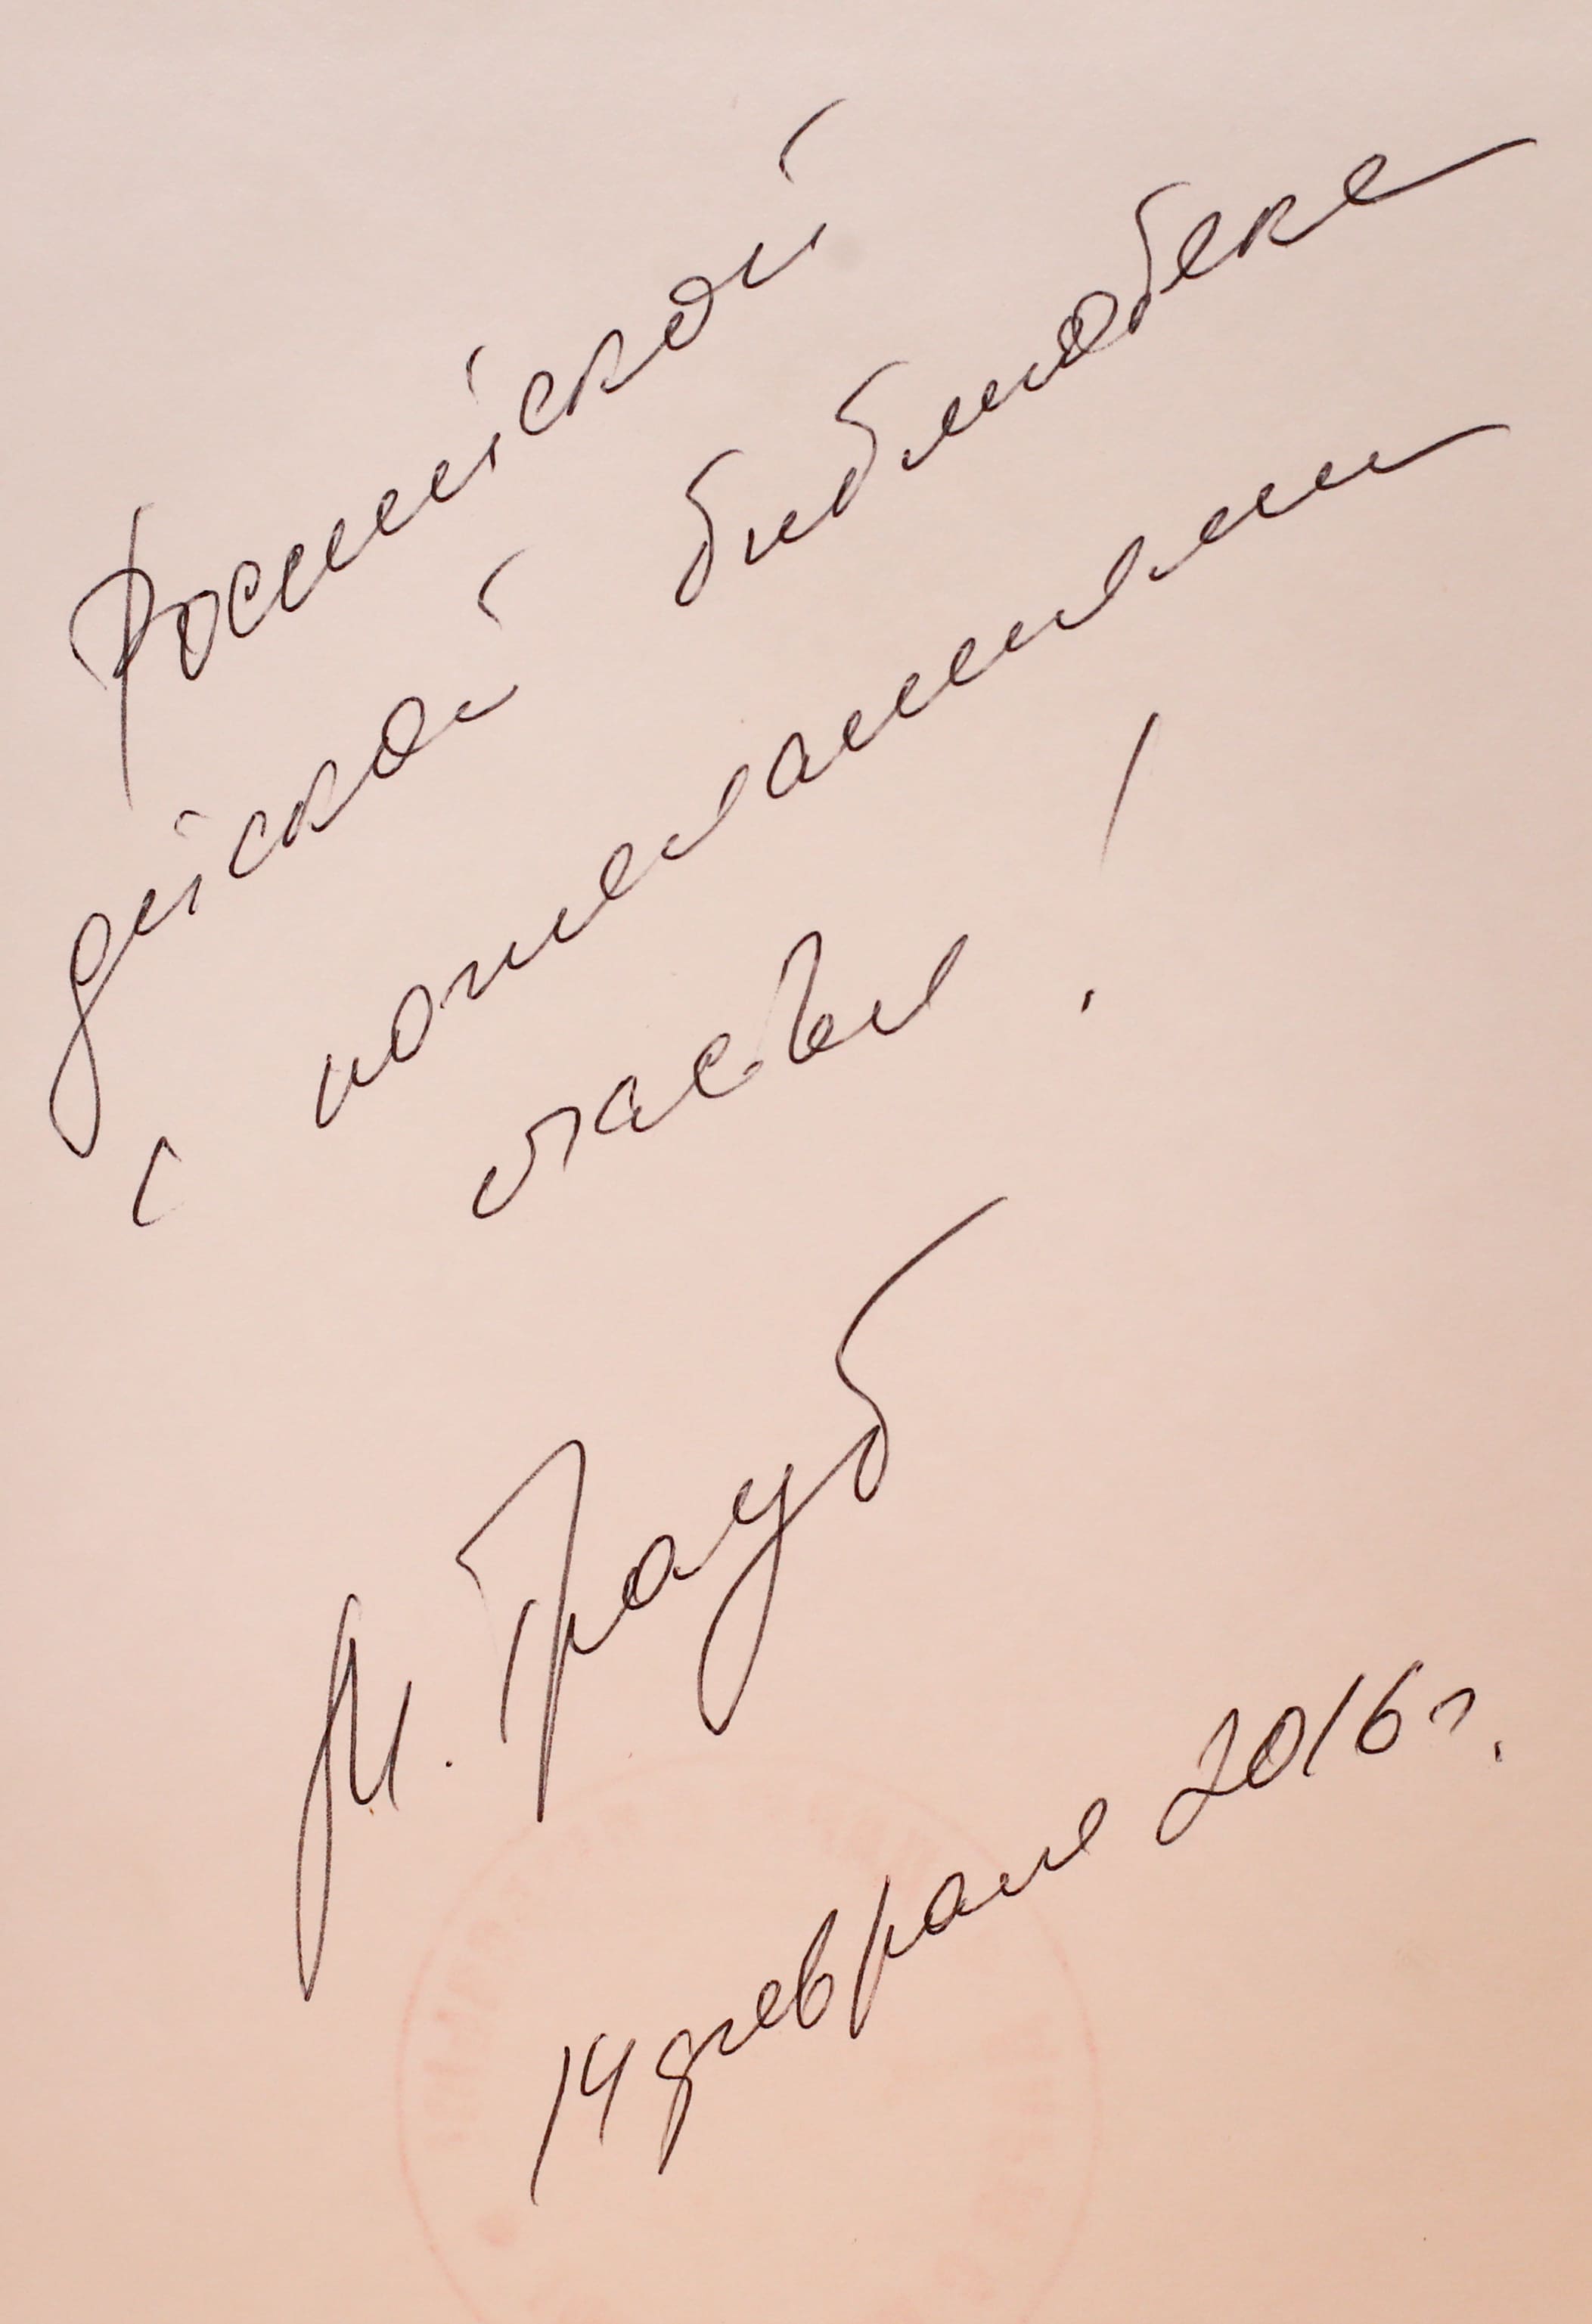 Российской
детской библиотеке
с пожеланиями
счастья!
М. Трауб
14 февраля 2016 г.